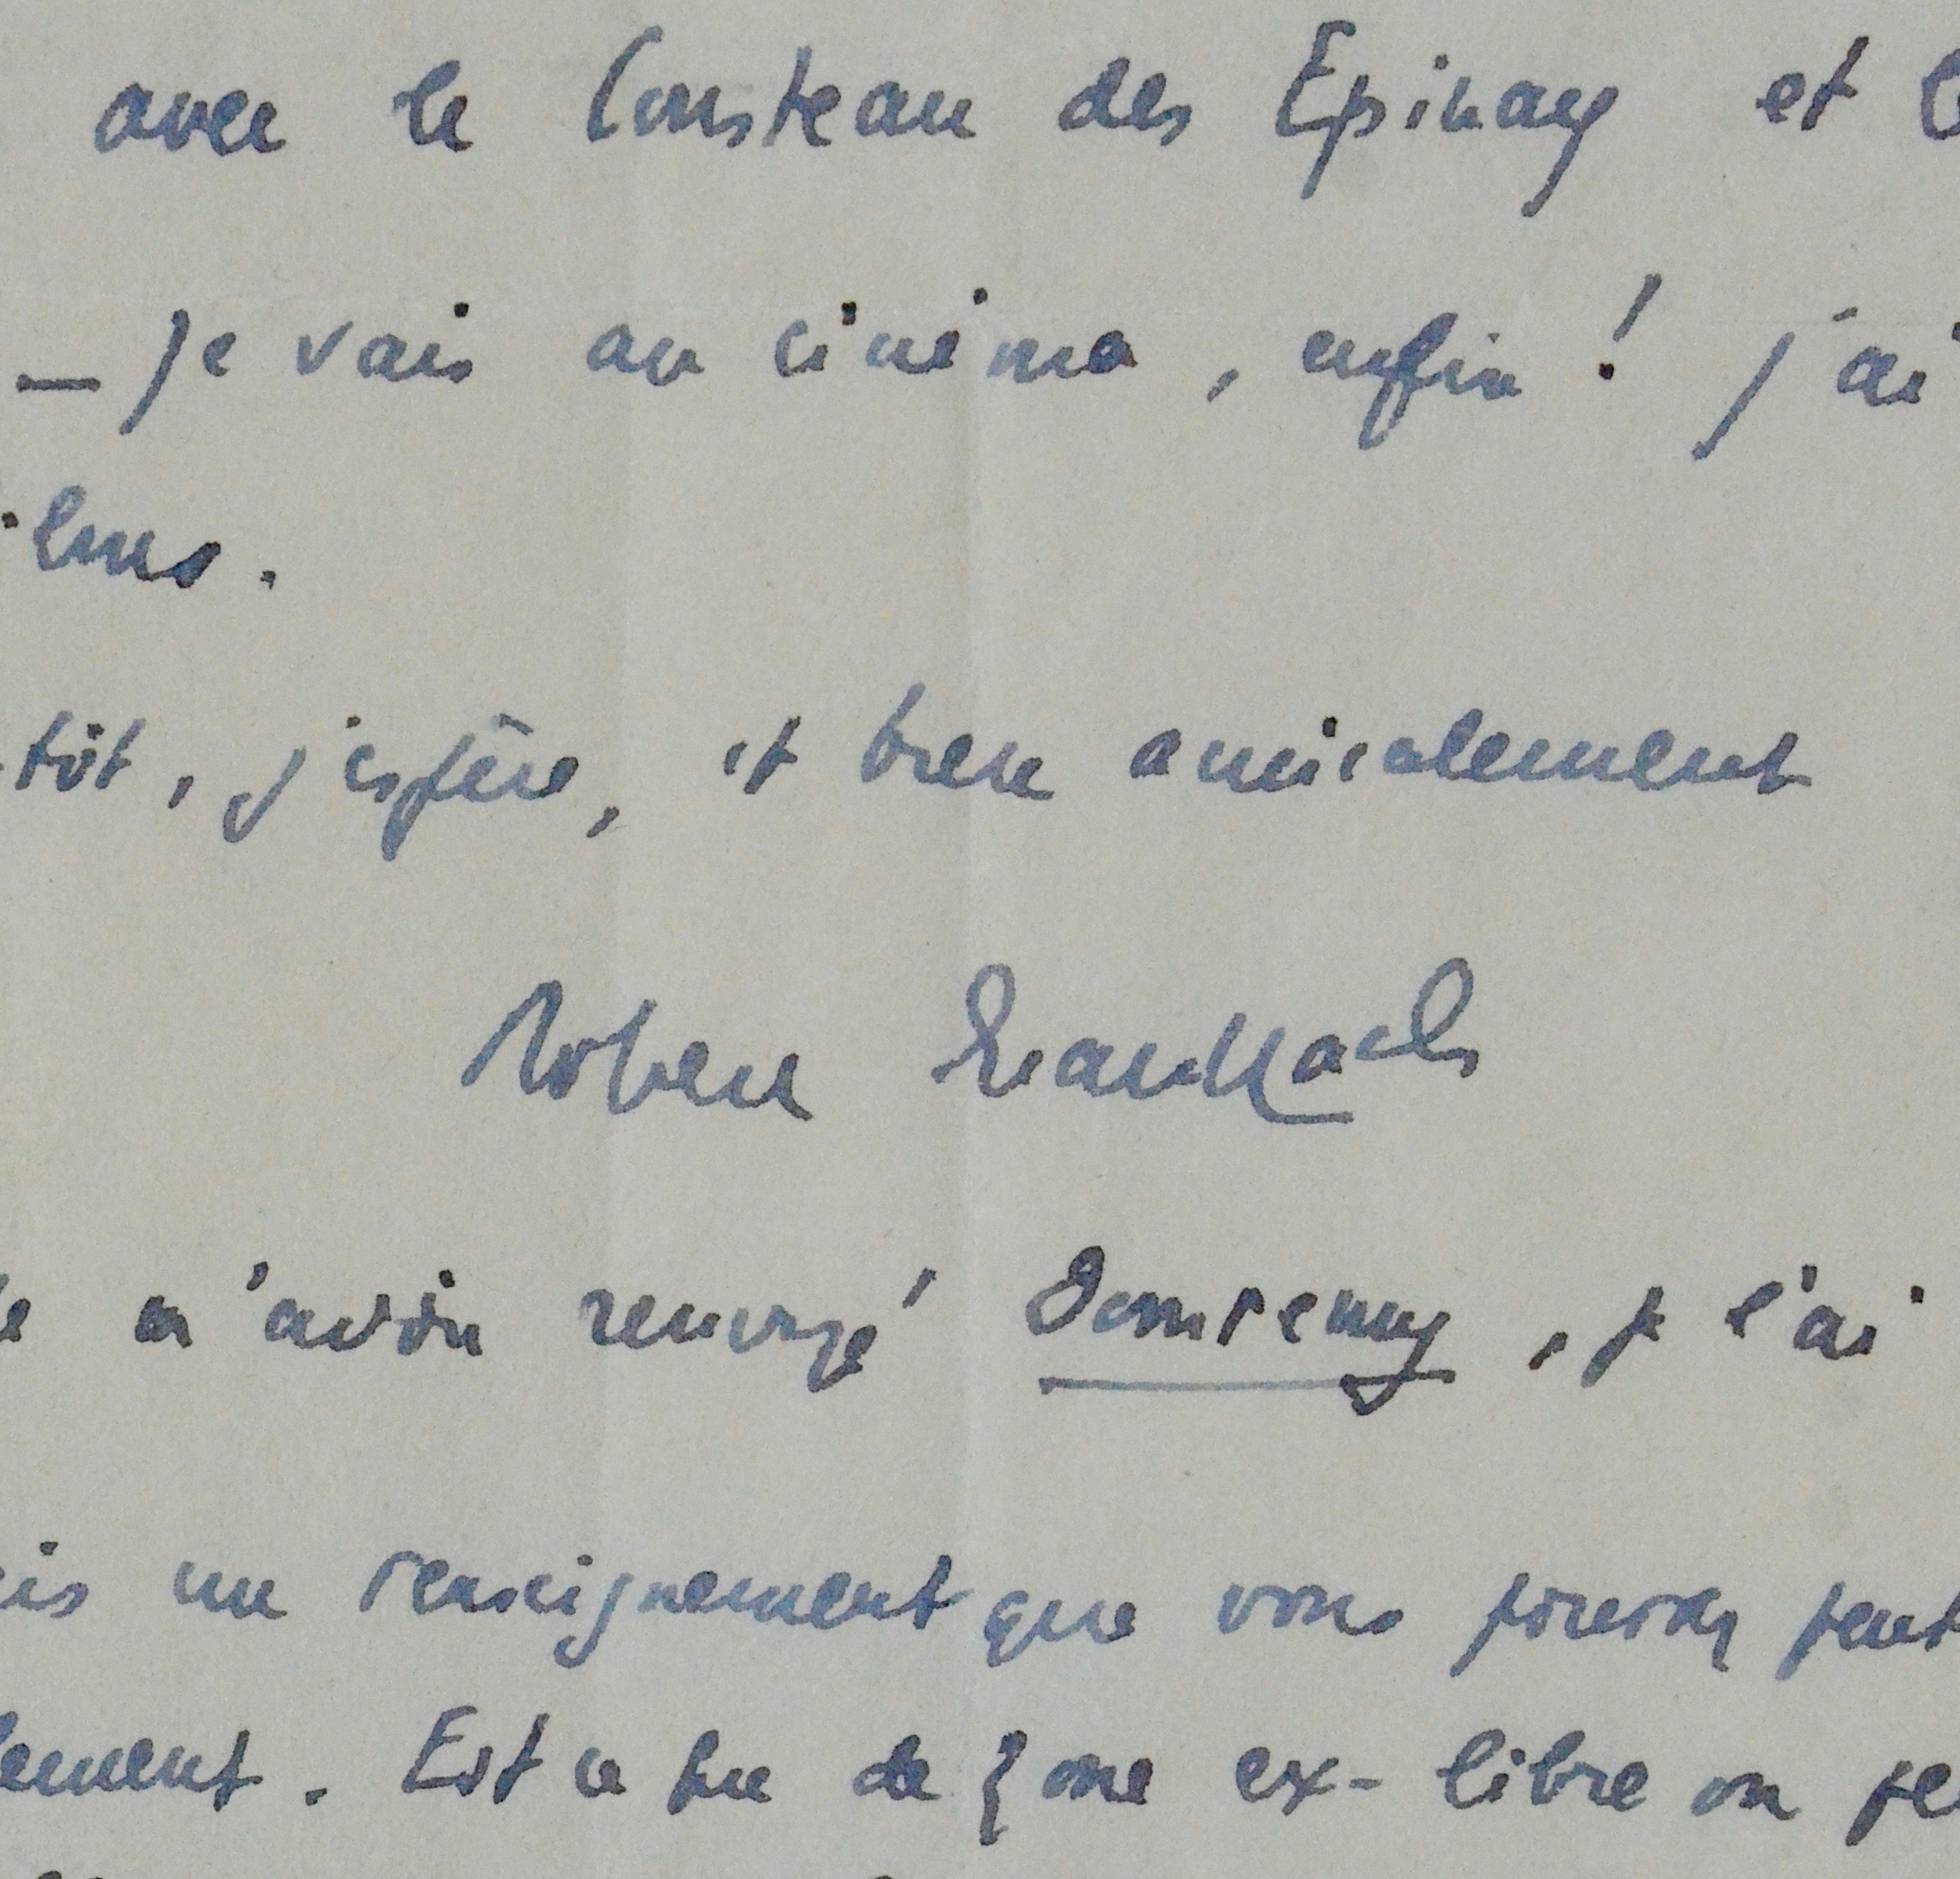 avec le Cousteau des Epinay et
_ je vais au cinéma, enfin ! j'ai
ilms.
tôt, j'espère, et bien amicalement
Robert Brasillach
m'avoir renvoyé Domremy, je l'ai
is un renseignement que vous pourrez peut
lement. Est ce que de Zone ex-libre on pe